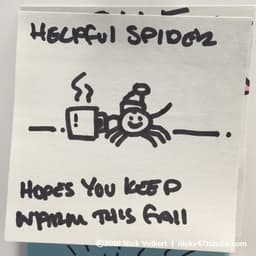 HELPFUL SPIDER
!
HOPES YOU KEEP
WARM THIS FALL
©2018 Nick Volkert | nicky47tumblr.com